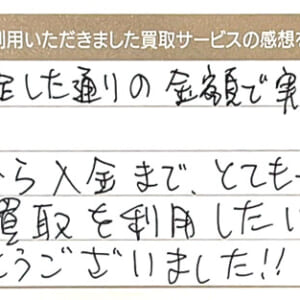 利用いただきました買取サービスの感想を
した通りの金額で実
ら入金まで、とても
買取を利用したい
うございました!!